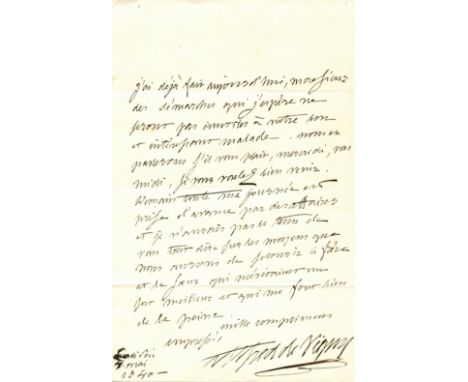 j'ai déjà fait aujourd'hui, monsieur
des démarches qui j'espère ne
seront pas inutiles à notre bon
et intéressant malade. nous en
parlerons s'il vous plait, mercredi, vers
midi, si vous voulez bien venir.
Demain toute ma journée est
prise d'avance par des affaires
et je n'aurais pas le tems de
vous tout dire sur les moyens que
nous aurons de secourir le frère
et la sœur qui méritaient un
sort meilleur et qui me font bien
de la peine.
mille complimens
empressés
Alfred de Vigny
Lundi soir
mai
1840 -